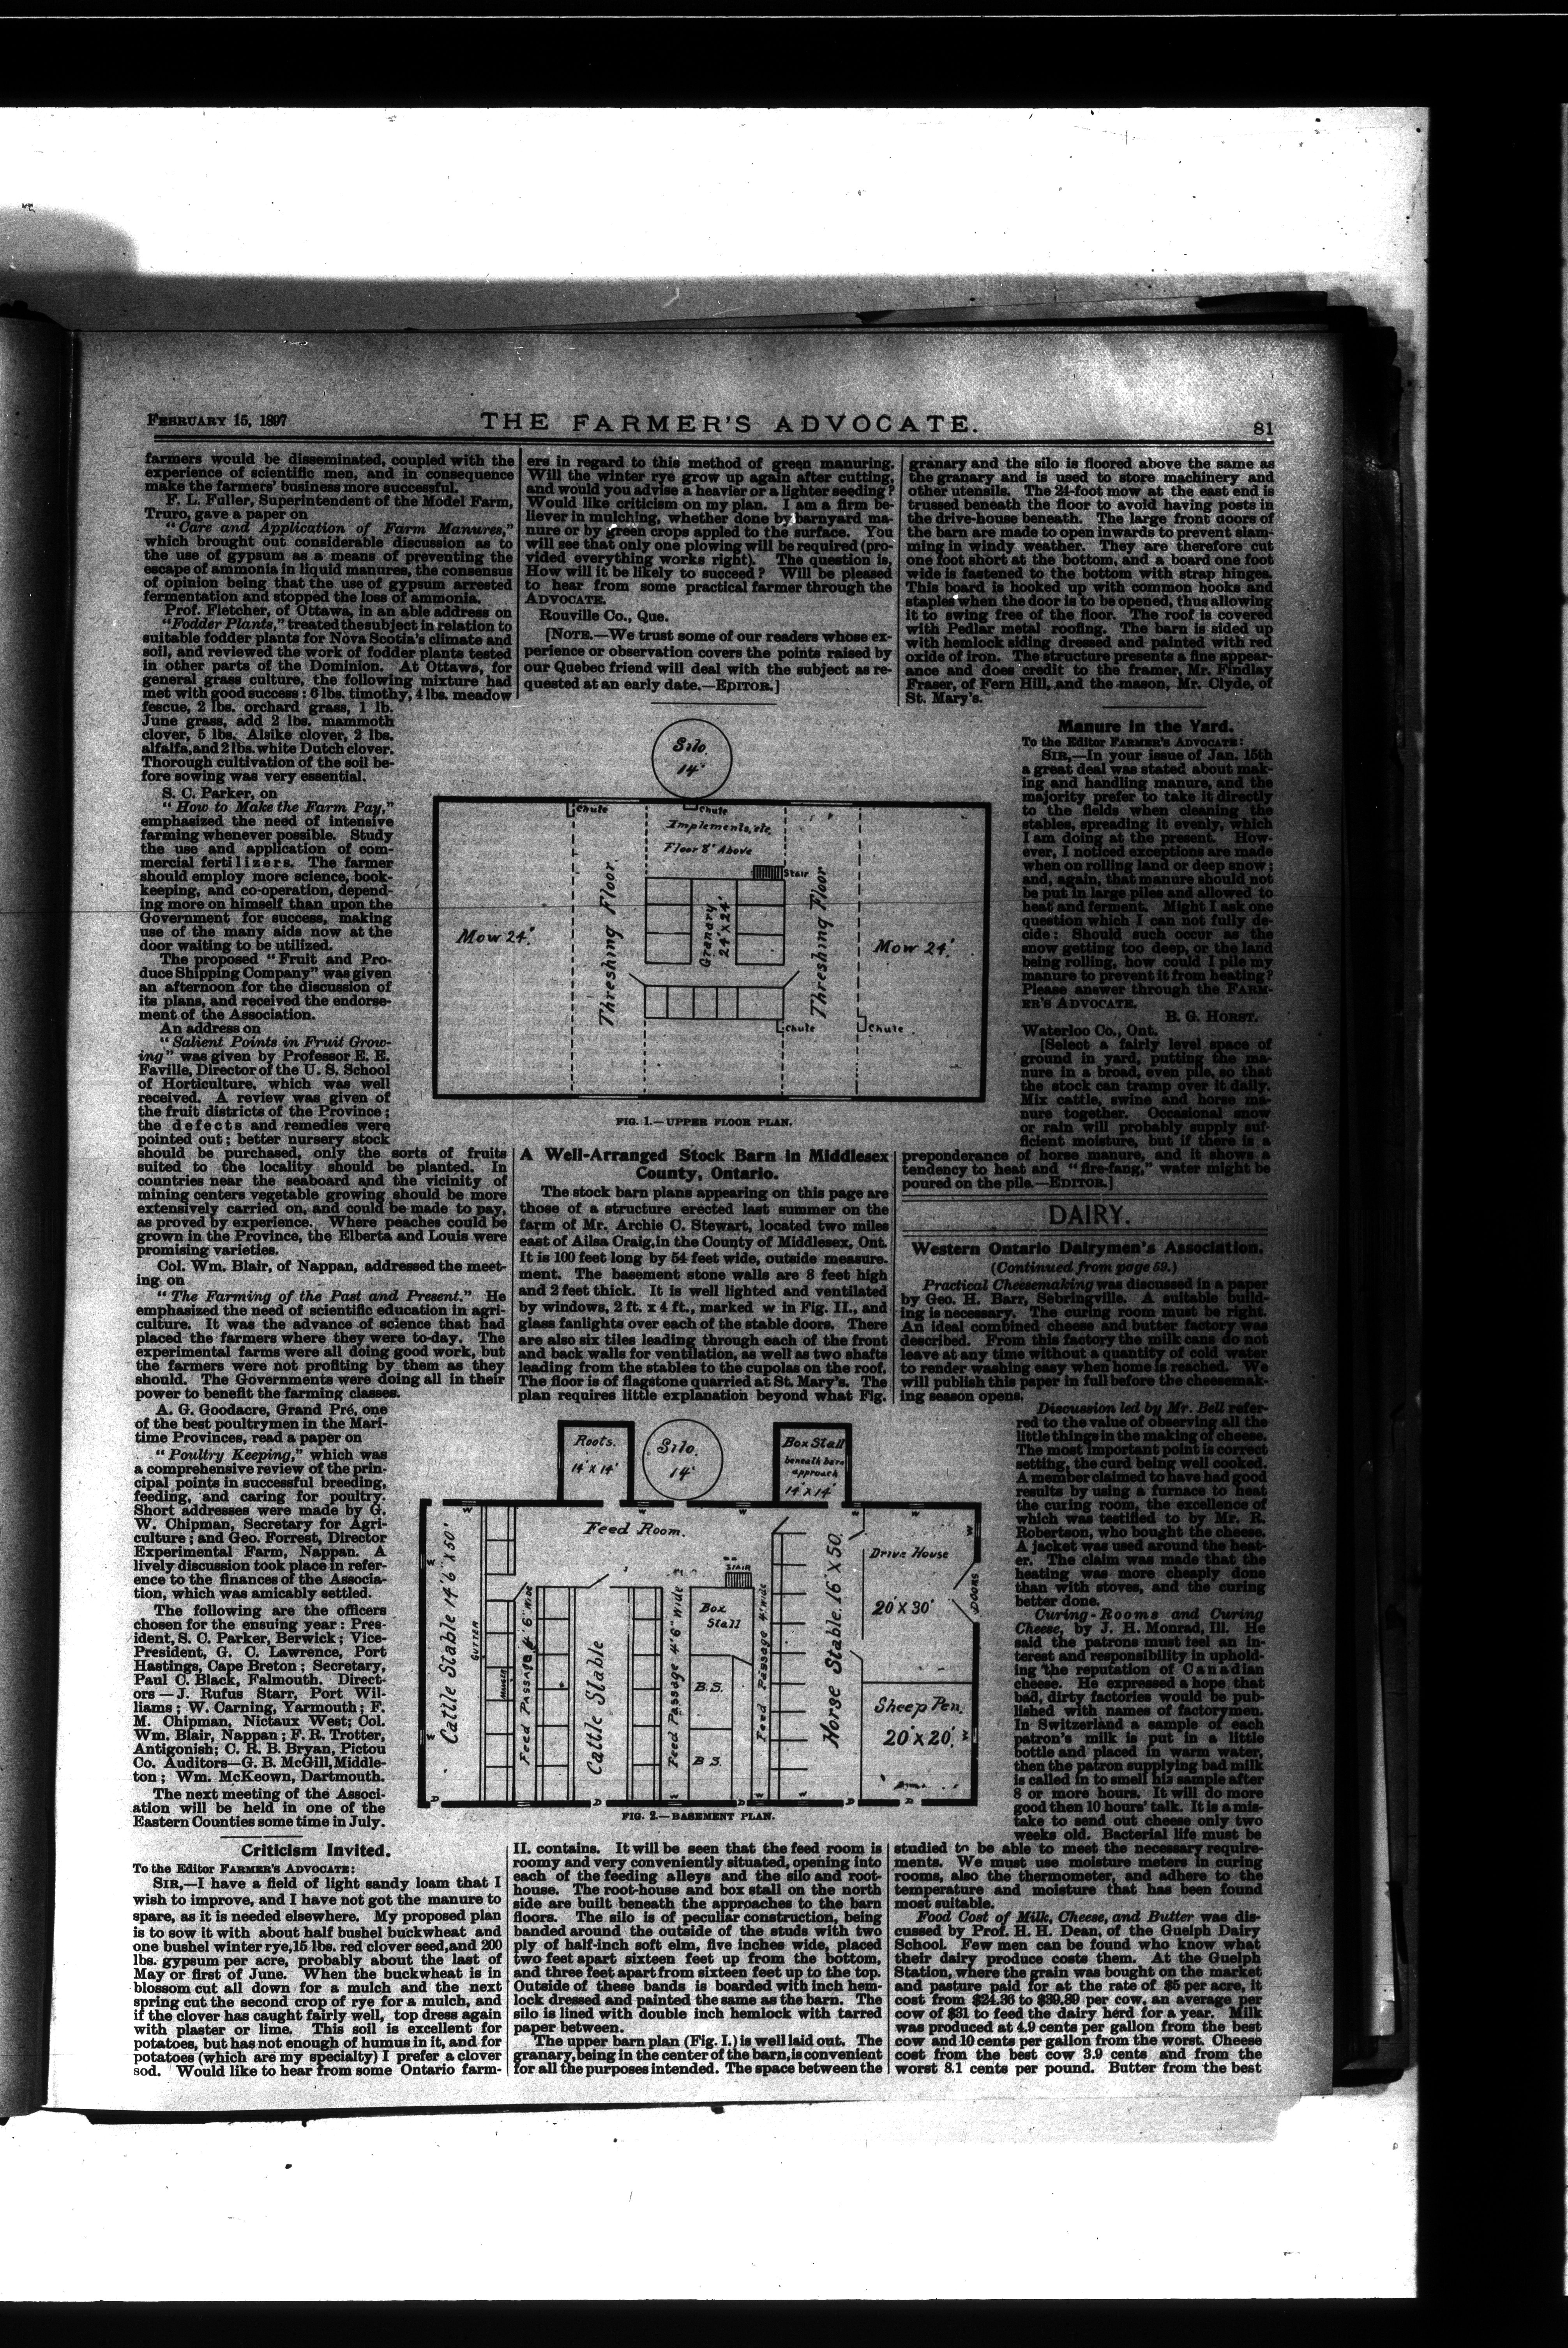 FEBRUARY 15, 1897
THE FARMER'S ADVOCATE.
81
farmers would be disseminated, coupled with the
experience of scientific men, and in consequence
make the farmers' business more successful.
F. L. Fuller, Superintendent of the Model Farm,
Truro, gave a paper on
"Care and Application of Farm Manures,"
which brought out considerable discussion as to
the use of gypsum as a means of preventing the
escape of ammonia in liquid manures, the consensus
of opinion being that the use of gypsum arrested
fermentation and stopped the loss of ammonia.
Prof. Fletcher, of Ottawa, in an able address on
"Fodder Plants," treated the subject in relation to
suitable fodder plants for Nova Scotia's climate and
soil, and reviewed the work of fodder plants tested
in other parts of the Dominion. At Ottawa, for
general grass culture, the following mixture had
met with good success: 6 lbs. timothy, 4 lbs. meadow
fescue, 2 lbs. orchard grass, 1 lb.
June grass, add 2 lbs. mammoth
clover, 5 lbs. Alsike clover, 2 lbs.
alfalfa, and 2 lbs. white Dutch clover.
Thorough cultivation of the soil be-
fore sowing was very essential.
S. C. Parker, on
"How to Make the Farm Pay,"
emphasized the need of intensive
farming whenever possible. Study
the use and application of com-
mercial fertilizers. The farmer
should employ more science, book-
keeping, and co-operation, depend-
ing more on himself than upon the
Government for success, making
use of the many aids now at the
door waiting to be utilized.
The proposed "Fruit and Pro-
duce Shipping Company" was given
an afternoon for the discussion of
its plans, and received the endorse-
ment of the Association.
An address on
"Salient Points in Fruit Grow-
ing" was given by Professor E. E.
Faville, Director of the U. S. School
of Horticulture, which was well
received. A review was given of
the fruit districts of the Province;
the defects and remedies were
pointed out; better nursery stock
should be purchased, only the sorts of fruits
suited to the locality should be planted. In
countries near the seaboard and the vicinity of
mining centers vegetable growing should be more
extensively carried on, and could be made to pay,
as proved by experience. Where peaches could be
grown in the Province, the Elberta and Louis were
promising varieties.
Col. Wm. Blair, of Nappan, addressed the meet-
ing on
"The Farming of the Past and Present." He
emphasized the need of scientific education in agri-
culture. It was the advance of science that had
placed the farmers where they were to-day. The
experimental farms were all doing good work, but
the farmers were not profiting by them as they
should. The Governments were doing all in their
power to benefit the farming classes.
A. G. Goodacre, Grand Pré, one
of the best poultrymen in the Mari-
time Provinces, read a paper on
"Poultry Keeping," which was
a comprehensive review of the prin-
cipal points in successful breeding,
feeding, and caring for poultry.
Short addresses were made by G.
W. Chipman, Secretary for Agri-
culture; and Geo. Forrest, Director
Experimental Farm, Nappan. A
lively discussion took place in refer-
ence to the finances of the Associa-
tion, which was amicably settled.
The following are the officers
chosen for the ensuing year: Pres-
ident, S. C. Parker, Berwick; Vice-
President, G. C. Lawrence, Port
Hastings, Cape Breton; Secretary,
Paul C. Black, Falmouth. Direct-
ors—J. Rufus Starr, Port Wil-
liams; W. Carning, Yarmouth; F.
M. Chipman, Nictaux West; Col.
Wm. Blair, Nappan; F. R. Trotter,
Antigonish; C. R. B. Bryan, Pictou
Co. Auditors—G. B. McGill, Middle-
ton; Wm. McKeown, Dartmouth.
The next meeting of the Associ-
ation will be held in one of the
Eastern Counties some time in July.
Criticism Invited.
To the Editor FARMER'S ADVOCATE:
SIR,—I have a field of light sandy loam that I
wish to improve, and I have not got the manure to
spare, as it is needed elsewhere. My proposed plan
is to sow it with about half bushel buckwheat and
one bushel winter rye, 15 lbs. red clover seed, and 200
lbs. gypsum per acre, probably about the last of
May or first of June. When the buckwheat is in
blossom cut all down for a mulch and the next
spring cut the second crop of rye for a mulch, and
if the clover has caught fairly well, top dress again
with plaster or lime. This soil is excellent for
potatoes, but has not enough of humus in it, and for
potatoes (which are my specialty) I prefer a clover
sod. Would like to hear from some Ontario farm-
ers in regard to this method of green manuring.
Will the winter rye grow up again after cutting,
and would you advise a heavier or a lighter seeding?
Would like criticism on my plan. I am a firm be-
liever in mulching, whether done by barnyard ma-
nure or by green crops appled to the surface. You
will see that only one plowing will be required (pro-
vided everything works right). The question is,
How will it be likely to succeed? Will be pleased
to hear from some practical farmer through the
ADVOCATE.
Rouville Co., Que.
[NOTE.—We trust some of our readers whose ex-
perience or observation covers the points raised by
our Quebec friend will deal with the subject as re-
quested at an early date.—EDITOR.]
Silo.
14'
Chute
Chute
Implements, etc.
Floor 8' Above
Stair
Mow 24'.
Threshing Floor
Granary
24' x 24'
Threshing Floor
Mow 24'.
Chute
Chute
FIG. 1.—UPPER FLOOR PLAN.
A Well-Arranged Stock Barn in Middlesex
County, Ontario.
The stock barn plans appearing on this page are
those of a structure erected last summer on the
farm of Mr. Archie C. Stewart, located two miles
east of Ailsa Craig, in the County of Middlesex, Ont.
It is 100 feet long by 54 feet wide, outside measure-
ment. The basement stone walls are 8 feet high
and 2 feet thick. It is well lighted and ventilated
by windows, 2 ft. x 4 ft., marked w in Fig. II., and
glass fanlights over each of the stable doors. There
are also six tiles leading through each of the front
and back walls for ventilation, as well as two shafts
leading from the stables to the cupolas on the roof.
The floor is of flagstone quarried at St. Mary's. The
plan requires little explanation beyond what Fig.
Roots.
14' x 14'
Silo.
14'
Box Stall
beneath barn
approach
14' x 14'
Feed Room.
Cattle Stable 14' 6" x 50'
GUTTER
MANGER
Feed Passage 4' 6" Wide
Cattle Stable
Feed Passage 4' 6" Wide
STAIR
Box
Stall
B.S.
B.S.
Feed Passage 4' Wide
Horse Stable. 16' x 50.
Drive House
20' x 30'
DOORS
Sheep Pen.
20' x 20'.
FIG. 2.—BASEMENT PLAN.
II. contains. It will be seen that the feed room is
roomy and very conveniently situated, opening into
each of the feeding alleys and the silo and root-
house. The root-house and box stall on the north
side are built beneath the approaches to the barn
floors. The silo is of peculiar construction, being
banded around the outside of the studs with two
ply of half-inch soft elm, five inches wide, placed
two feet apart sixteen feet up from the bottom,
and three feet apart from sixteen feet up to the top.
Outside of these bands is boarded with inch hem-
lock dressed and painted the same as the barn. The
silo is lined with double inch hemlock with tarred
paper between.
The upper barn plan (Fig. I.) is well laid out. The
granary, being in the center of the barn, is convenient
for all the purposes intended. The space between the
granary and the silo is floored above the same as
the granary and is used to store machinery and
other utensils. The 24-foot mow at the east end is
trussed beneath the floor to avoid having posts in
the drive-house beneath. The large front doors of
the barn are made to open inwards to prevent slam-
ming in windy weather. They are therefore cut
one foot short at the bottom, and a board one foot
wide is fastened to the bottom with strap hinges.
This board is hooked up with common hooks and
staples when the door is to be opened, thus allowing
it to swing free of the floor. The roof is covered
with Pedlar metal roofing. The barn is sided up
with hemlock siding dressed and painted with red
oxide of iron. The structure presents a fine appear-
ance and does credit to the framer, Mr. Findlay
Fraser, of Fern Hill, and the mason, Mr. Clyde, of
St. Mary's.
Manure in the Yard.
To the Editor FARMER'S ADVOCATE:
SIR,—In your issue of Jan. 15th
a great deal was stated about mak-
ing and handling manure, and the
majority prefer to take it directly
to the fields when cleaning the
stables, spreading it evenly, which
I am doing at the present. How-
ever, I noticed exceptions are made
when on rolling land or deep snow;
and, again, that manure should not
be put in large piles and allowed to
heat and ferment. Might I ask one
question which I can not fully de-
cide: Should such occur as the
snow getting too deep, or the land
being rolling, how could I pile my
manure to prevent it from heating?
Please answer through the FARM-
ER'S ADVOCATE.
B. G. HORST.
Waterloo Co., Ont.
[Select a fairly level space of
ground in yard, putting the ma-
nure in a broad, even pile, so that
the stock can tramp over it daily.
Mix cattle, swine and horse ma-
nure together. Occasional snow
or rain will probably supply suf-
ficient moisture, but if there is a
preponderance of horse manure, and it shows a
tendency to heat and "fire-fang," water might be
poured on the pile.—EDITOR.]
DAIRY.
Western Ontario Dairymen's Association.
(Continued from page 59.)
Practical Cheesemaking was discussed in a paper
by Geo. H. Barr, Sebringville. A suitable build-
ing is necessary. The curing room must be right.
An ideal combined cheese and butter factory was
described. From this factory the milk cans do not
leave at any time without a quantity of cold water
to render washing easy when home is reached. We
will publish this paper in full before the cheesemak-
ing season opens.
Discussion led by Mr. Bell refer-
red to the value of observing all the
little things in the making of cheese.
The most important point is correct
setting, the curd being well cooked.
A member claimed to have had good
results by using a furnace to heat
the curing room, the excellence of
which was testified to by Mr. R.
Robertson, who bought the cheese.
A jacket was used around the heat-
er. The claim was made that the
heating was more cheaply done
than with stoves, and the curing
better done.
Curing-Rooms and Curing
Cheese, by J. H. Monrad, Ill. He
said the patrons must feel an in-
terest and responsibility in uphold-
ing the reputation of Canadian
cheese. He expressed a hope that
bad, dirty factories would be pub-
lished with names of factorymen.
In Switzerland a sample of each
patron's milk is put in a little
bottle and placed in warm water,
then the patron supplying bad milk
is called in to smell his sample after
8 or more hours. It will do more
good then 10 hours' talk. It is a mis-
take to send out cheese only two
weeks old. Bacterial life must be
studied to be able to meet the necessary require-
ments. We must use moisture meters in curing
rooms, also the thermometer, and adhere to the
temperature and moisture that has been found
most suitable.
Food Cost of Milk, Cheese, and Butter was dis-
cussed by Prof. H. H. Dean, of the Guelph Dairy
School. Few men can be found who know what
their dairy produce costs them. At the Guelph
Station, where the grain was bought on the market
and pasture paid for at the rate of $5 per acre, it
cost from $24.36 to $39.89 per cow, an average per
cow of $31 to feed the dairy herd for a year. Milk
was produced at 4.9 cents per gallon from the best
cow and 10 cents per gallon from the worst. Cheese
cost from the best cow 3.9 cents and from the
worst 8.1 cents per pound. Butter from the best